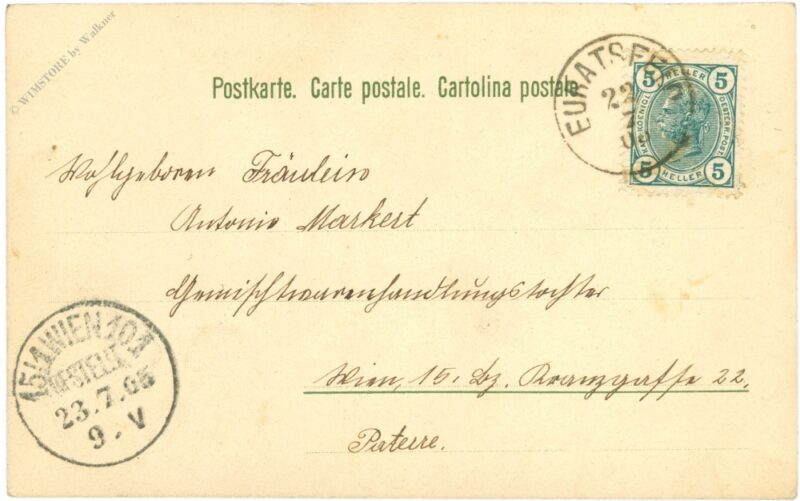 © WIMSTORE by Walkner
Postkarte. Carte postale. Cartolina postale.
EURATSFELD
22
5 HELLER 5
KAIS. KOENIGL. OESTERR. POST.
5 HELLER 5
Wohlgeboren Fräulein
Antonie Markert
Gemischtwarenhandlungstochter
Wien, 15. Bz. Kranzgasse 22.
Paterre.
15/1 WIEN 101
BESTELLT
23.7.05
9.V